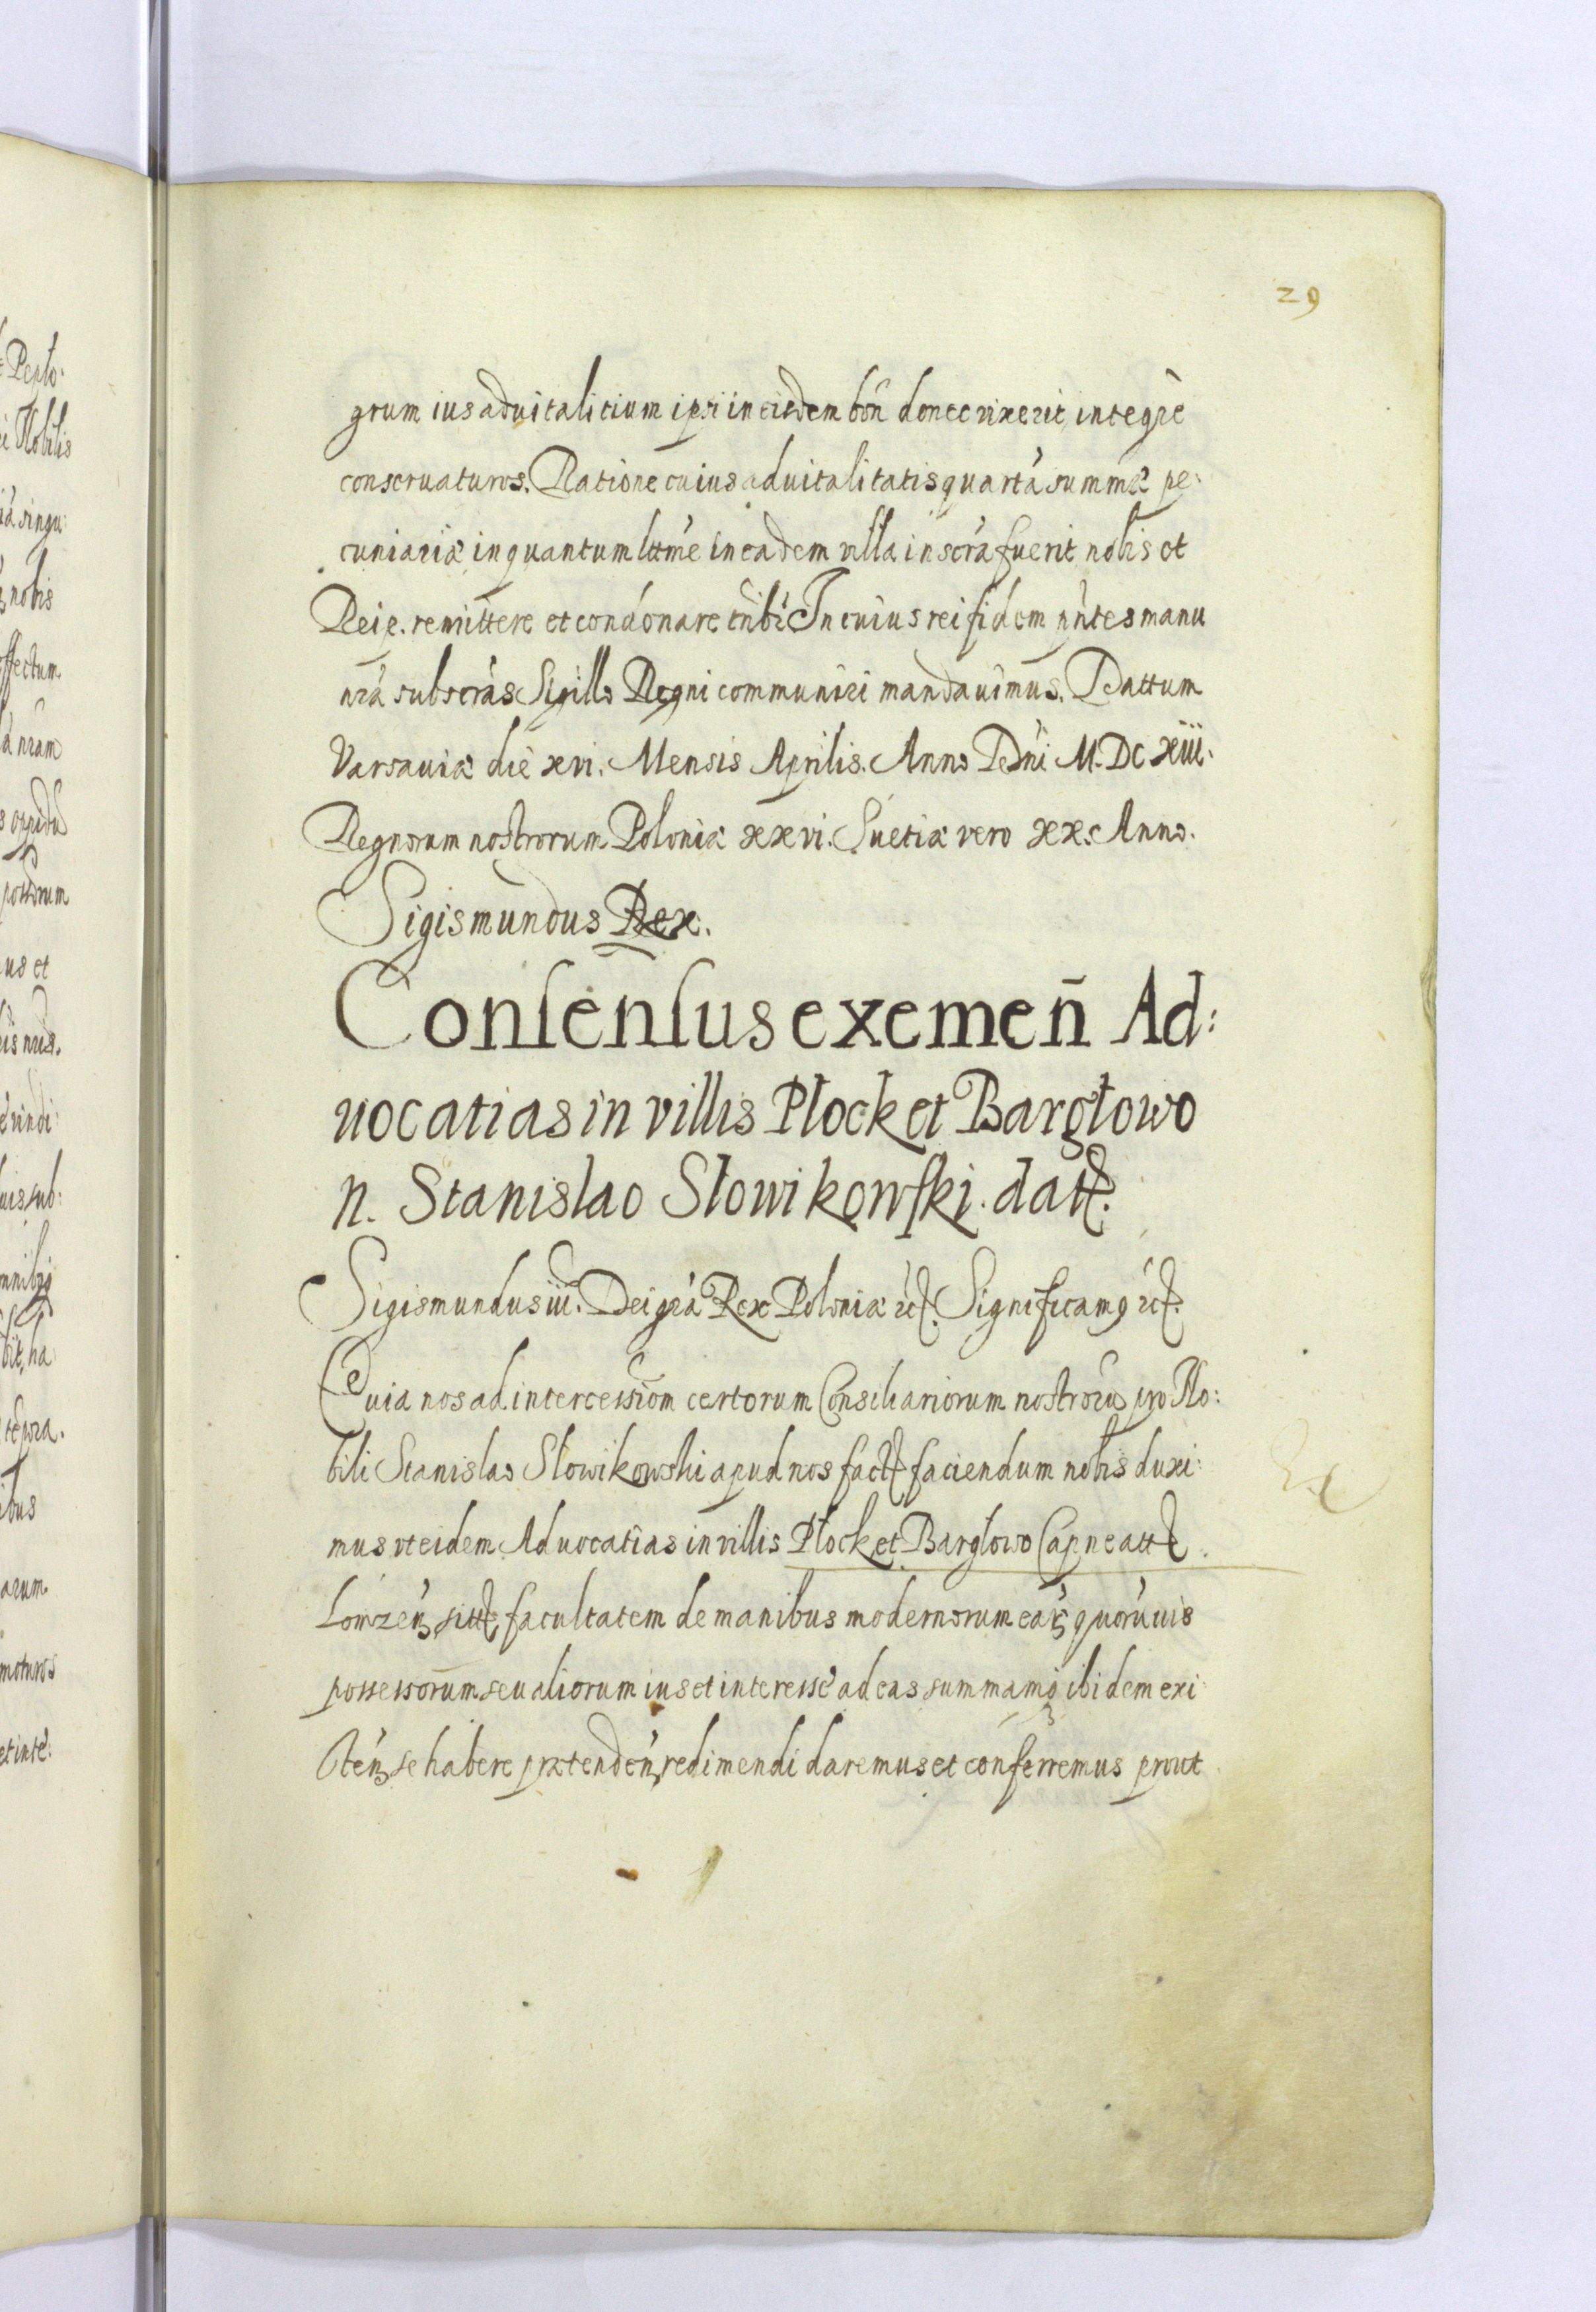 29
grum ius aduitalitium ipsi in eisdem bon̄ donec vixerit, integrè
conseruaturos. Ratione cuius aduitalitatis quarta summæ pe:
cuniariæ inquantum lttme in eadem villa inscra fuerit nobis et
Reip. remittere et condonare tñbr In cuius rei fidem pñtes manu
nra subscras Sigillo Regni communiri mandauimus. Dattum
Varsauiæ die xvi. Mensis Aprilis. Anno Dñi M.DC xiii.
Regnorum nostrorum Poloniæ xxvi. Suetiæ vero xx. Anno.
Sigismundus Rex.
Consensus exemeñ Ad:
uocatias in villis Płock et Bargłowo
n. Stanislao Słowikowski. datt.
Sigismundus iii. Dei gra Rex Poloniæ etc. Significamq etc.
Quia nos ad intercessiom certorum Consiliariorum nostroru pro No:
bili Stanislao Słowikowski apud nos fact faciendum nobis duxi:
mus vt eidem Aduocatias in villis Płock et Bargłowo Capneatt
Łomzeñ sitt facultatem de manibus modernorum earꝫ quoruuis
possessorum seu aliorum ius et interesse ad eas summamq ibidem exi
steñ se habere prætendeñ redimendi daremus et conferremus prout